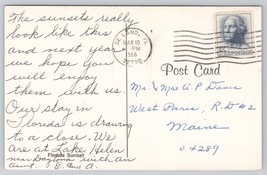 The sunsets really
look like this
and next year
we hope you
will enjoy
them with us.
Our stay in
Florida is drawing
to a close. We
are at Lake Helen
near Daytona with an
aunt. E. and A.
Florida Sunset
DELAND, FL
MAR 10
PM
1966
32720
Post Card
Mr. & Mrs A. P. Davis
West Paris, R.D #2
Maine
04289